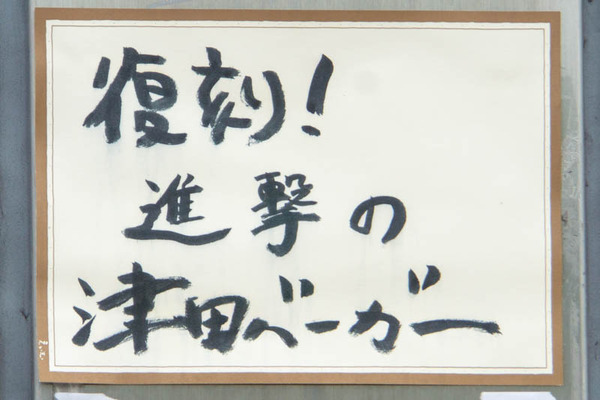 復刻!
進撃の
津田バーガー